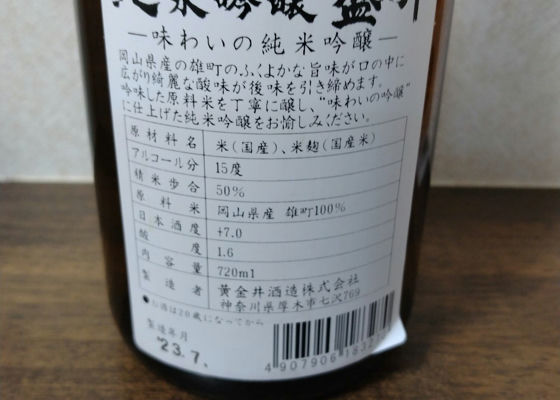 純米吟醸 盛升
―味わいの純米吟醸―
岡山県産の雄町のふくよかな旨味が口の中に
広がり綺麗な酸味が後味を引き締めます。
吟味した原料米を丁寧に醸し、"味わいの吟醸"
に仕上げた純米吟醸をお愉しみください。
原材料名 米(国産)、米麹(国産米)
アルコール分 15度
精米歩合 50%
原料米 岡山県産 雄町100%
日本酒度 +7.0
酸度 1.6
内容量 720ml
製造者 黄金井酒造株式会社
神奈川県厚木市七沢769
●お酒は20歳になってから
製造年月
'23.7.
4 907906 1832